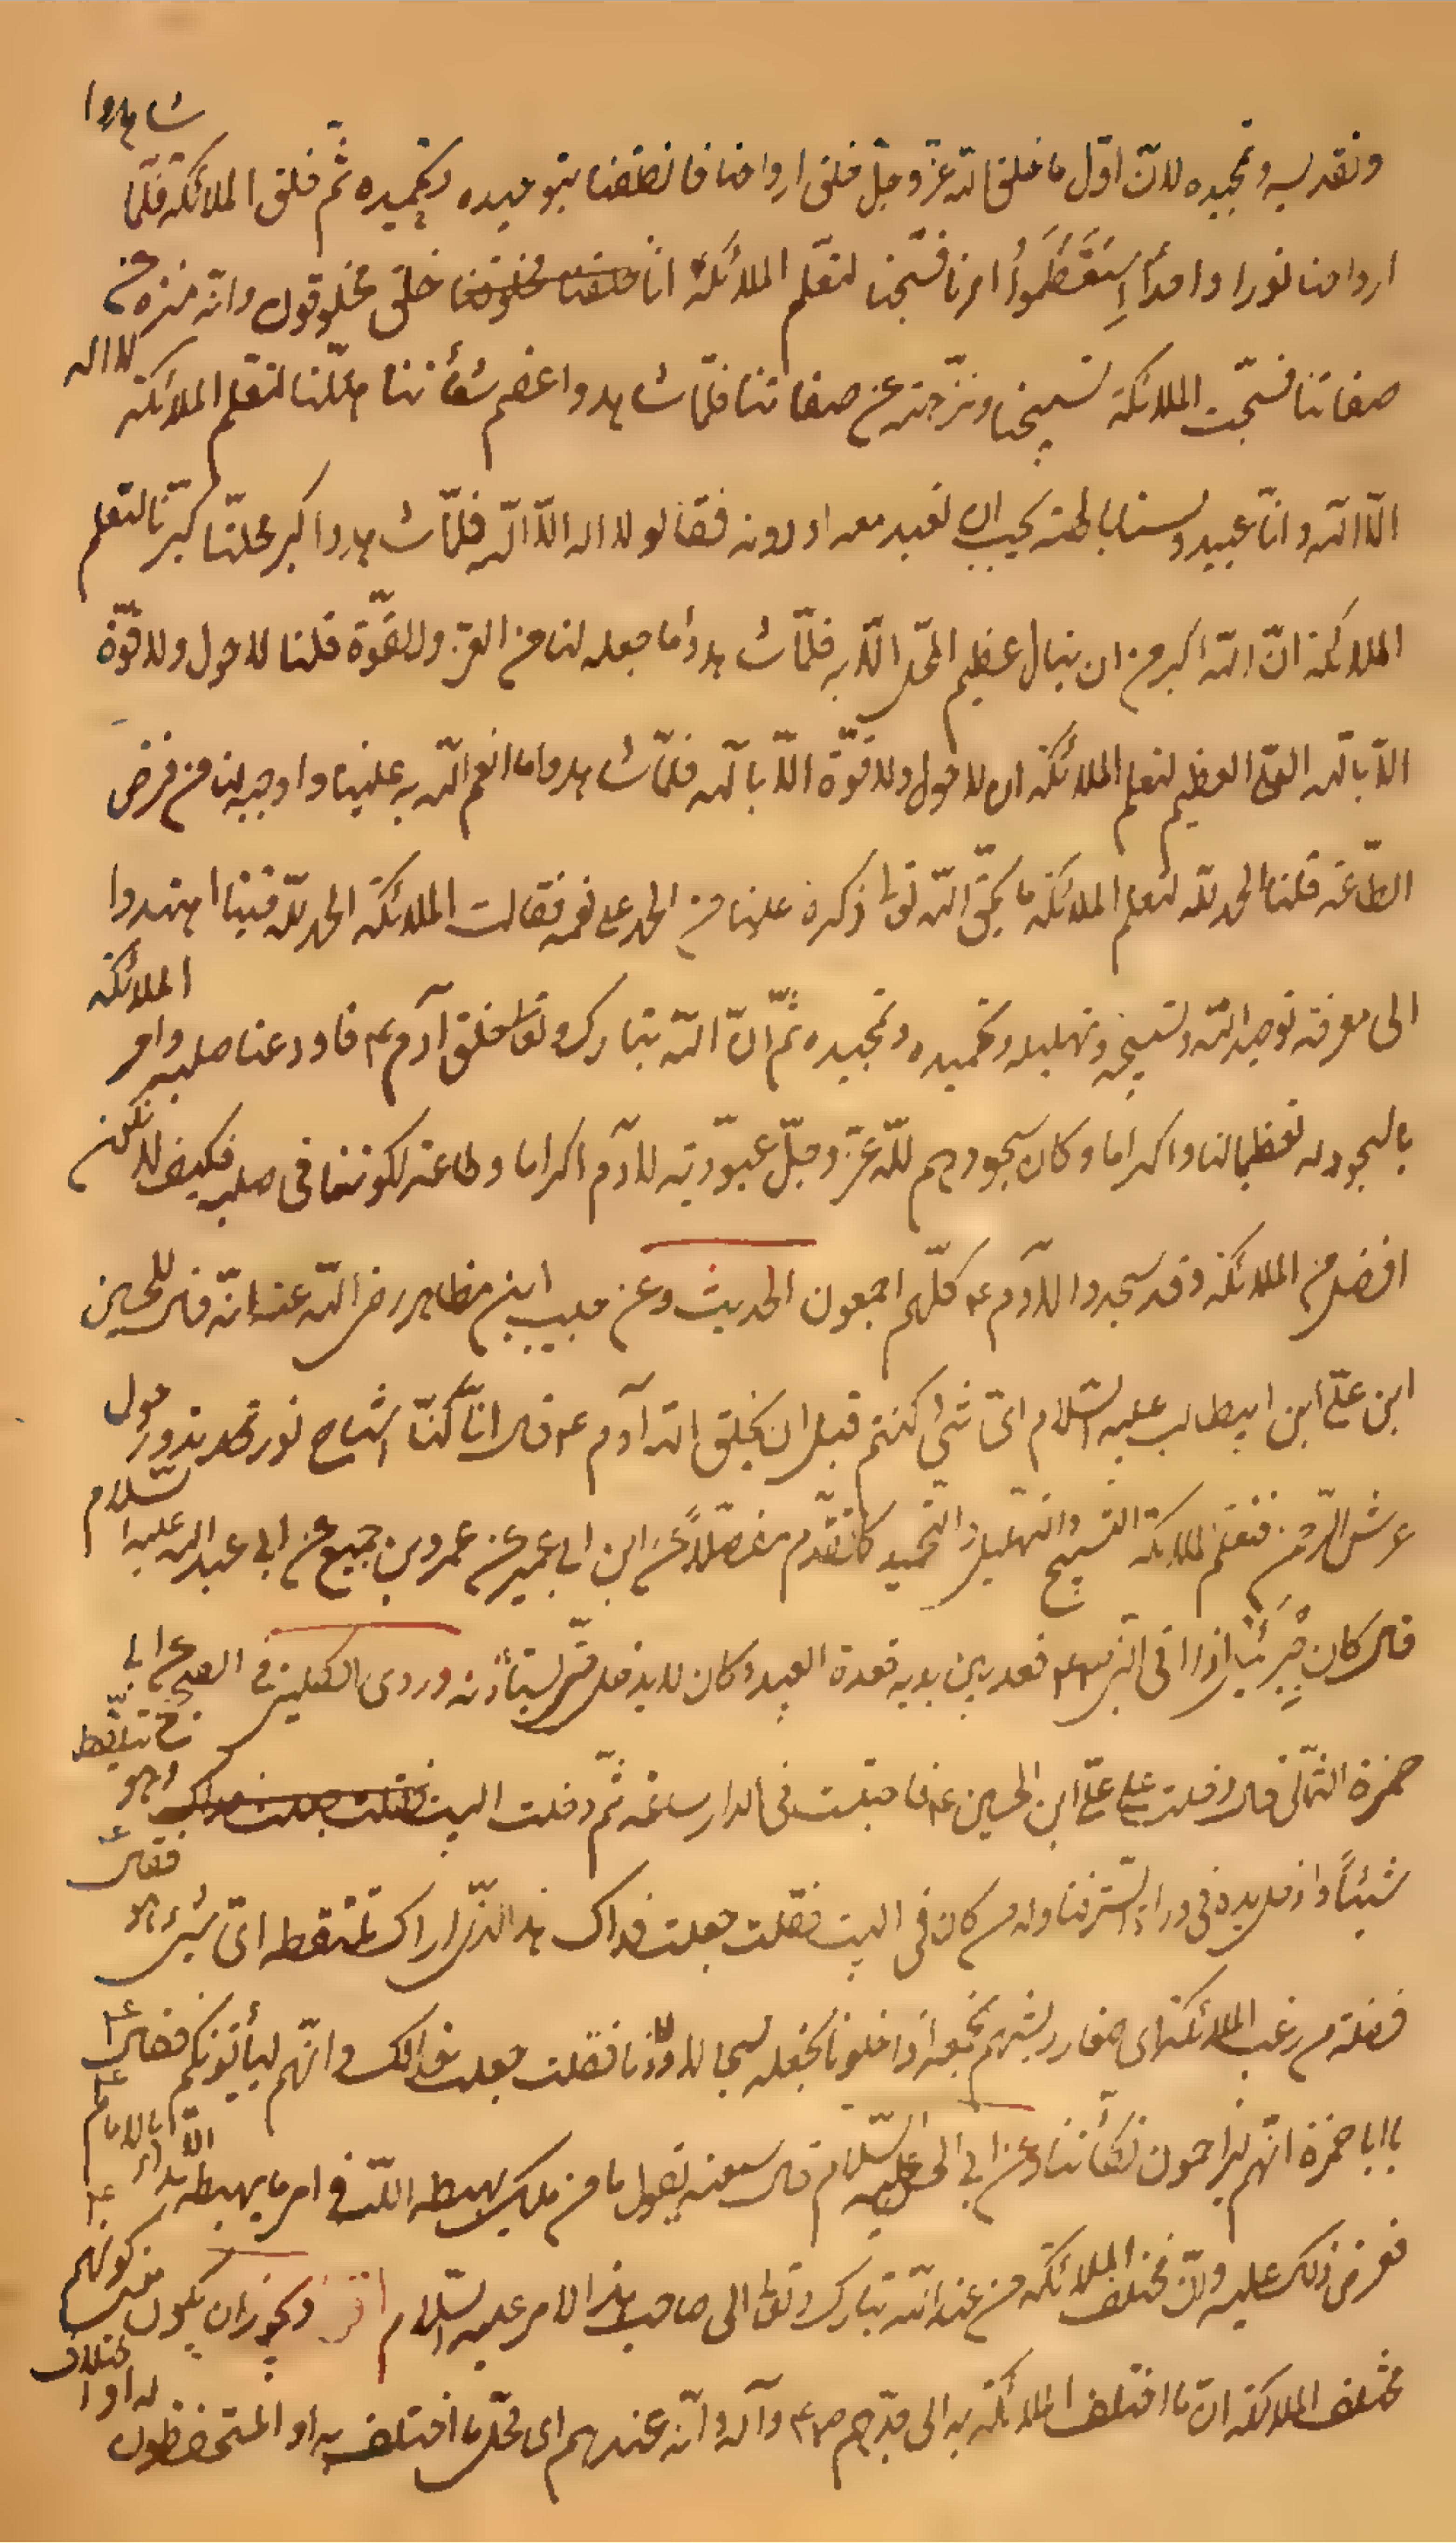 وتقديسه وتمجيده لانّ اوّل ما خلق الله عزّ وجلّ خلق ارواحنا فانطقنا بتوحيده وتحميده ثمّ خلق الملائكة فلمّا شاهدوا
ارواحنا نورا واحداً اِستَعْظَمُوا امرنا فسبّحنا لتعلم الملائكة انّا خلق مخلوقون وانّه منزه عن
صفاتنا فسبّحت الملائكة تسبيحنا ونزّهته عن صفاتنا فلمّا شاهدوا عظم شأننا هلّلنا لتعلم الملائكة لا اله
الّا الله وانّا عبيد ولسنا بالهة يجب ان نعبد معه او دونه فقالوا لا اله الّا الله فلمّا شاهدوا كبر محلّنا كبّرنا لتعلم
الملائكة انّ الله اكبر من ان ينال عظيم المحل الّا به فلمّا شاهدوا ما جعله لنا من العزّ والقوّة قلنا لا حول ولا قوّة
الّا بالله العلي العظيم لتعلم الملائكة ان لا حول ولا قوّة الّا بالله فلمّا شاهدوا ما انعم الله به علينا واوجبه لنا من فرض
الطّاعة قلنا الحمد لله لتعلم الملائكة ما يحقّ لله تعالى ذكره علينا من الحمد على نعمه فقالت الملائكة الحمد لله فبنا اهتدوا
الى معرفة توحيد الله وتسبيحه وتهليله وتحميده وتمجيده ثمّ انّ الله تبارك وتعالى خلق آدم ع فاودعنا صلبه وامر الملائكة
بالسجود له تعظيما لنا واكراما وكان سجودهم للّه عزّ وجلّ عبوّديّة ولآدم اكراما وطاعة لكوننا في صلبه فكيف لا نكون
افضل من الملائكة وقد سجدوا لآدم ع كلّهم اجمعون الحديث وعن حبيب ابن مظاهر رضى الله عنه انّه قال للحسين
ابن علىّ ابن ابيطالب عليه السّلام اىّ شئ كنتم قبل ان يخلق الله آدم ع قال انّا كنّا اشباح نور ندور حول
عرش الرّحمن فنعلم الملائكة التسبيح والتهليل والتحميد كما تقدّم مفصّلاً عن ابن ابى عمير عن عمرو بن جميع عن ابى عبد الله عليه السّلام
قال كان جبرئيل اذا اتى النبى ص قعد بين يديه قعدة العبد وكان لا يدخل حتّى يستأذنه وروى الكلينى فى الصحيح عن ابى
حمزة الثمالى قال دخلت على علىّ ابن الحسين ع فاحتبست فى الدار ساعة ثمّ دخلت البيت وهو يلتقط
شيئاً وادخل يده فى وراء السّتر فناوله من كان فى البيت فقلت جعلت فداك هذا الذّى اراك تلتقطه اىّ شئ هو فقال ع
فضلة من زغب الملائكة اى صغار ريشهم نجمعه اذا خلونا نجعله سيحا لاولادنا فقلت جعلت فداك وانّهم ليأتونكم فقال ع
يا ابا حمزة انّهم ليزاحمون تكأتنا وعن ابى الحسن عليه السّلام قال سمعته يقول ما من ملك يهبطه اللّه فى امر ما يهبطه الّا بدأ بالامام ع
فعرض ذلك عليه وانّ مختلف الملائكة من عند اللّه تبارك وتعالى الى صاحب هذا الامر عليه السّلام ويجوز ان يكون معنى كونهم
مختلف الملائكة انّ ما اختلف الملائكة به الى جدّهم ص وآله وانّه عندهم اى محلّ ما اختلف به او المستحفظون له او